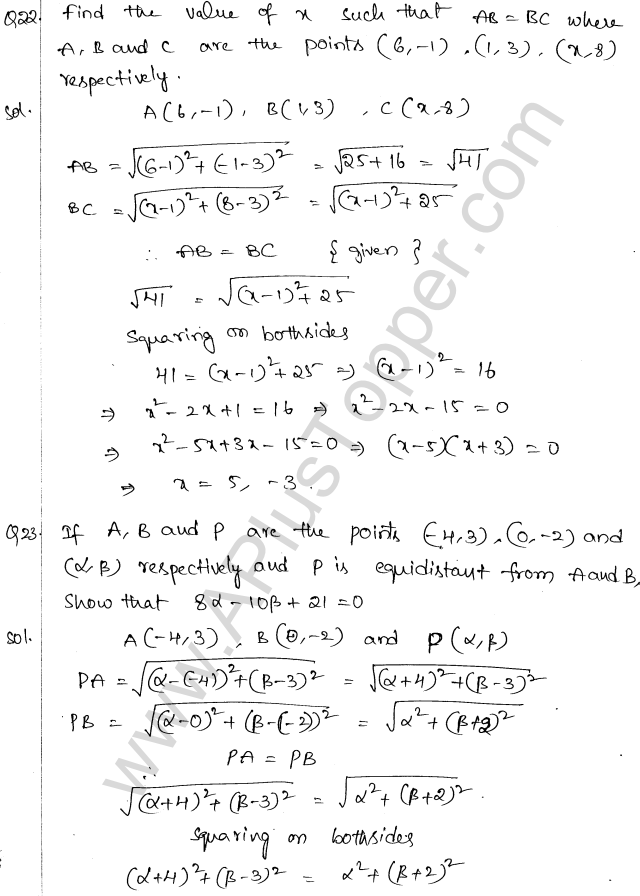 Q22. Find the value of x such that AB = BC where
A, B and C are the points (6,-1), (1,3), (x,8)
respectively.
Sol. A(6,-1), B(1,3), C(x,8)
AB = √(6-1)²+(-1-3)² = √25+16 = √41
BC = √(x-1)²+(8-3)² = √(x-1)²+25
∴ AB = BC {given}
√41 = √(x-1)²+25
Squaring on bothsides
41 = (x-1)²+25 ⇒ (x-1)² = 16
⇒ x²-2x+1 = 16 ⇒ x²-2x-15 = 0
⇒ x²-5x+3x-15=0 ⇒ (x-5)(x+3) = 0
⇒ x = 5, -3.
Q23. If A, B and P are the points (-4,3), (0,-2) and
(α,β) respectively and P is equidistant from A and B,
Show that 8α-10β+21=0
Sol. A(-4,3), B(0,-2) and P(α,β)
PA = √(α-(-4))²+(β-3)² = √(α+4)²+(β-3)²
PB = √(α-0)²+(β-(-2))² = √α²+(β+2)²
∴ PA = PB
√(α+4)²+(β-3)² = √α²+(β+2)².
Squaring on bothsides
(α+4)²+(β-3)² = α²+(β+2)²
www.APlusTopper.com